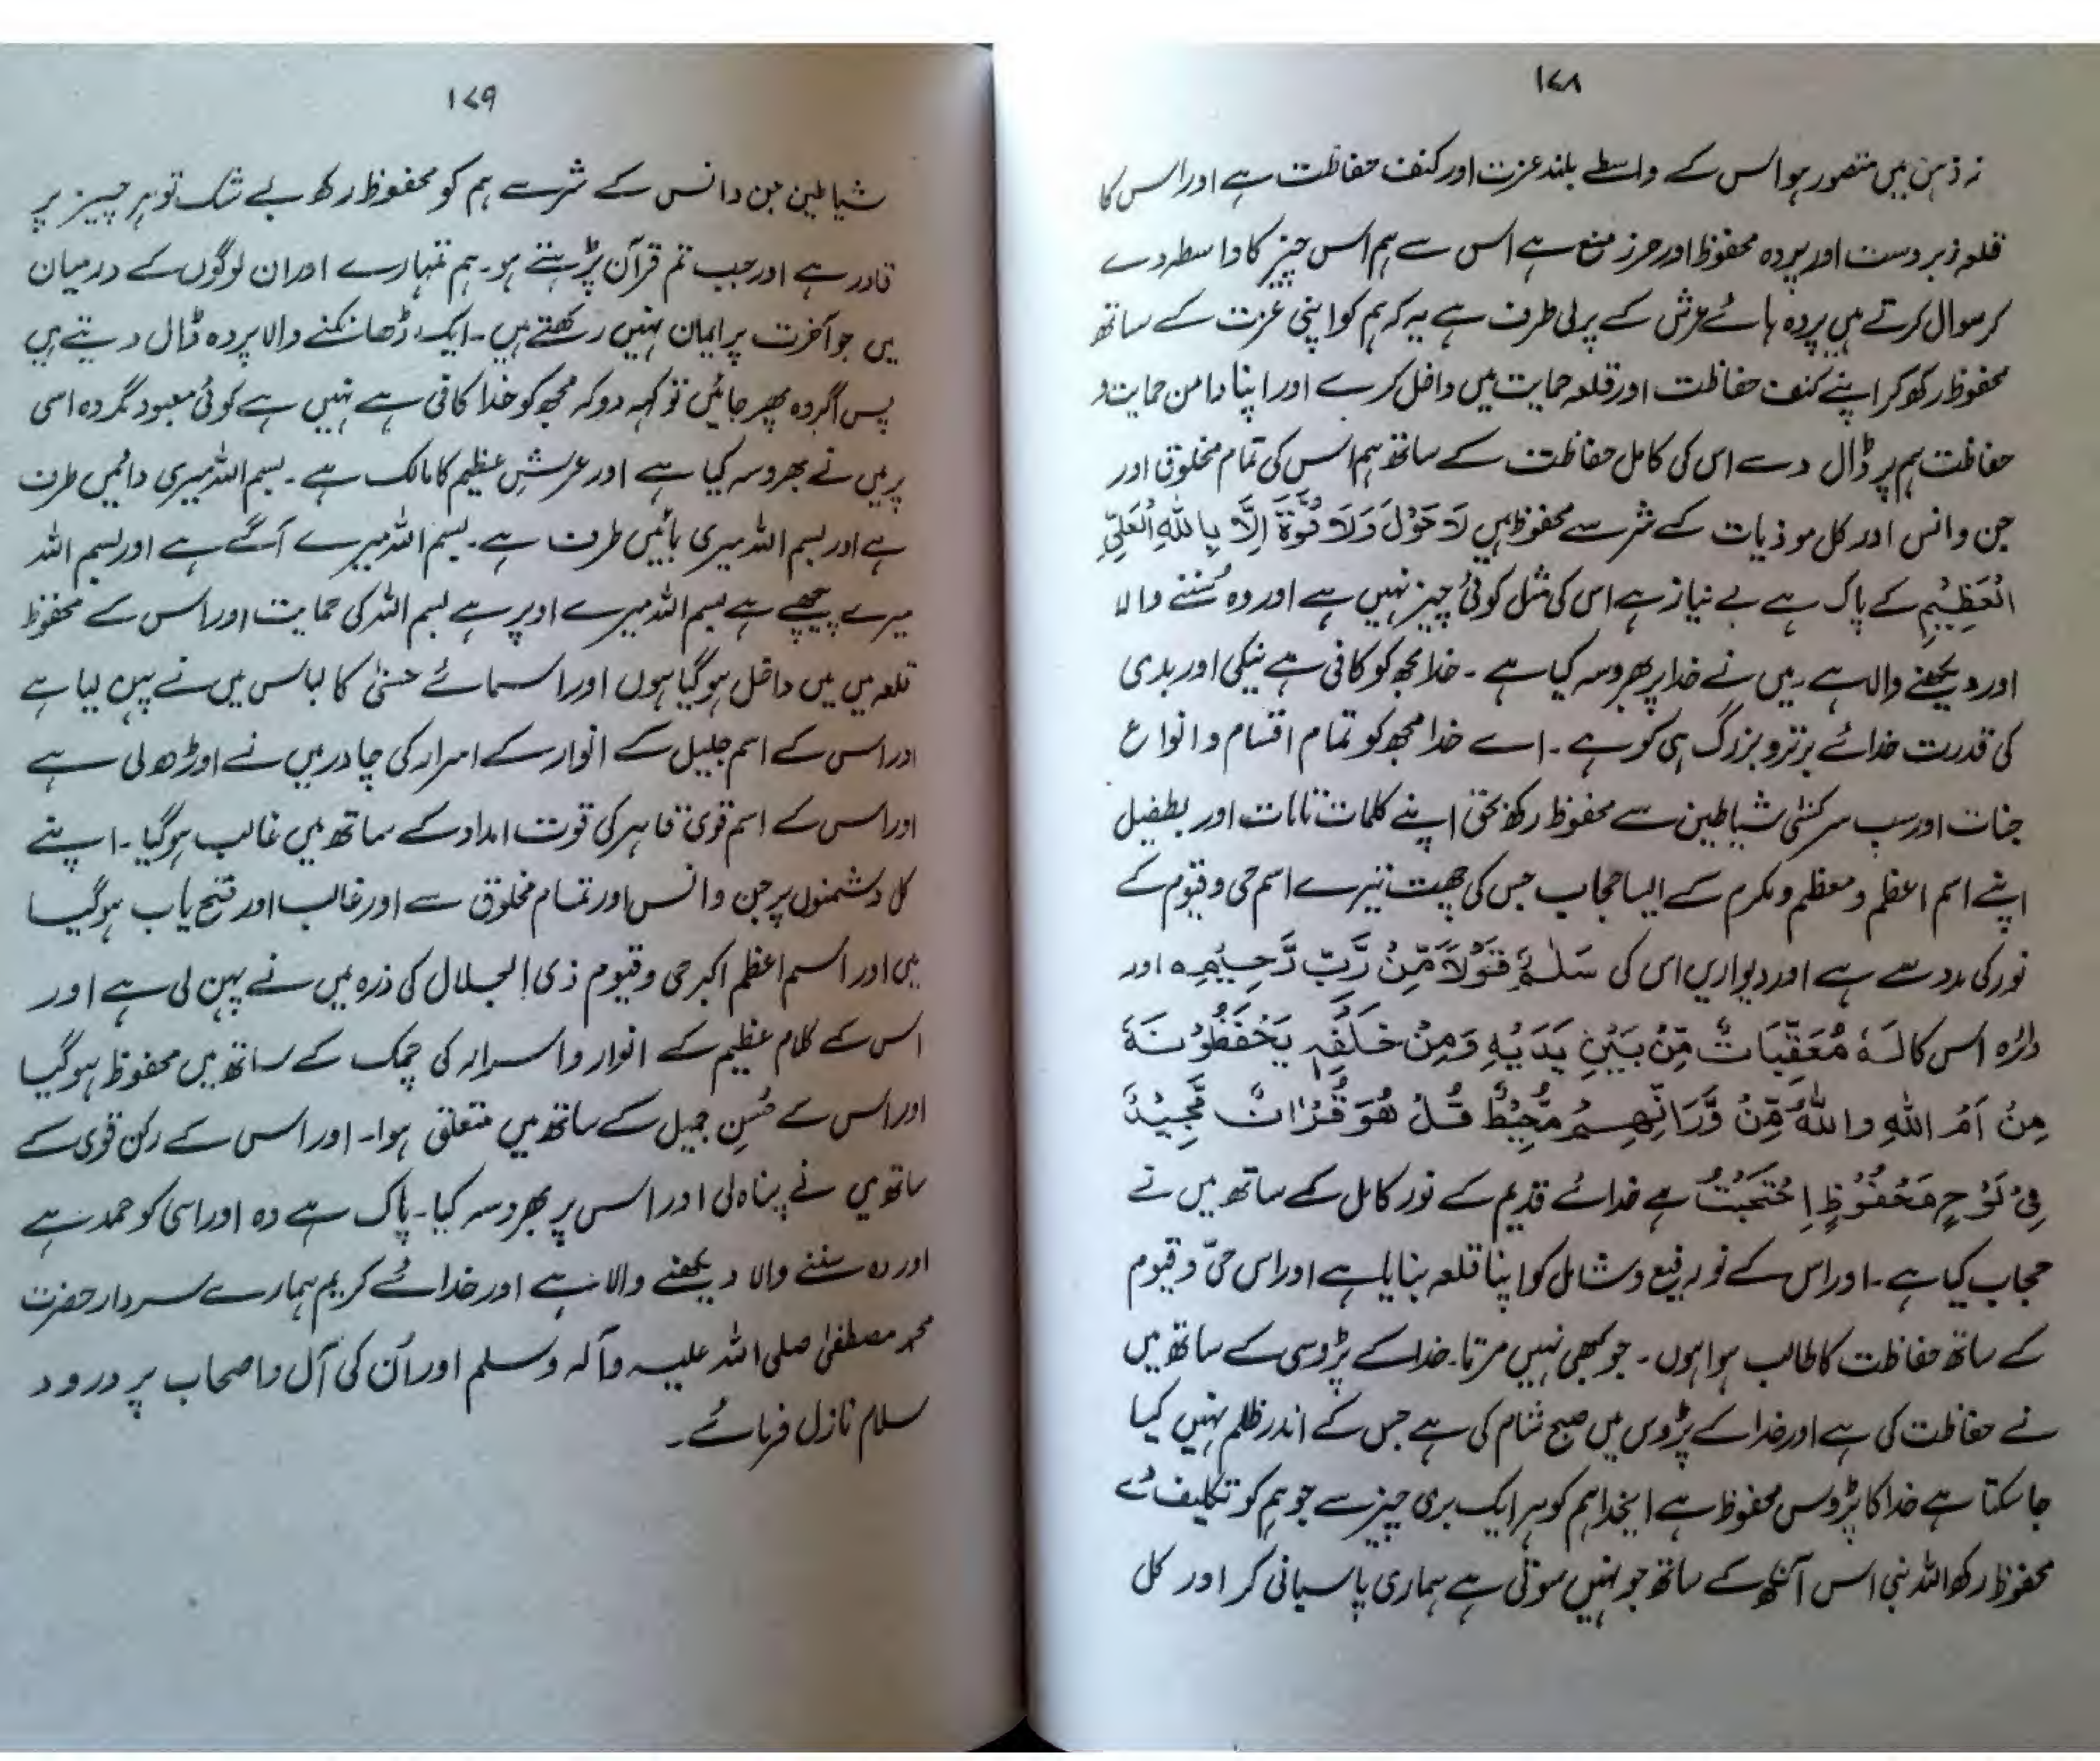 ۱۷۸
نہ ذہن میں متصور ہو اس کے واسطے بلند عزت اور کنف حفاظت ہے اور اس کا
قلعہ زبردست اور پردہ محفوظ اور حرز منع ہے اس سے ہم اس چیز کا واسطہ دے
کر سوال کرتے ہیں پردہ ہائے عرش کے پرلی طرف ہے یہ کہ ہم کو اپنی عزت کے ساتھ
محفوظ رکھ کر اپنے کنف حفاظت اور قلعہ حمایت میں داخل کرے اور اپنا دامن حمایت و
حفاظت ہم پر ڈال دے اس کی کامل حفاظت کے ساتھ ہم اس کی تمام مخلوق اور
جن و انس اور کل موذیات کے شر سے محفوظ ہیں لَاحَوْلَ وَلَا قُوَّةَ اِلَّا بِاللّٰهِ الْعَلِيِّ
الْعَظِيْمِ کے پاک ہے بے نیاز ہے اس کی مثل کوئی چیز نہیں ہے اور وہ سُننے والا
اور دیکھنے والا ہے۔ میں نے خدا پر بھروسہ کیا ہے ۔ خدا مجھ کو کافی ہے نیکی اور بدی
کی قدرت خدائے برتر و بزرگ ہی کو ہے ۔ اے خدا مجھ کو تمام اقسام و انواع
جنات اور سب سرکش شیاطین سے محفوظ رکھ بحق اپنے کلمات تامات اور بطفیل
اپنے اسم اعظم و معظم و مکرم کے ایسا حجاب جس کی چھت تیرے اسم حی و قیوم کے
نور کی مدد سے ہے اور دیواریں اس کی سَلٰمٌ قَوْلًا مِّنْ رَّبٍّ رَّحِيْمٍ ہ اور
دائرہ اس کا لَهٗ مُعَقِّبَاتٌ مِّنْ بَيْنِ يَدَيْهِ وَمِنْ خَلْفِهٖ يَحْفَظُوْنَهٗ
مِنْ اَمْرِ اللّٰهِ وَاللّٰهُ مِّنْ وَّرَائِهِمْ مُّحِيْطٌ قُلْ هُوَ قُرْاٰنٌ مَّجِيْدٌ
فِیْ لَوْحٍ مَّحْفُوْظٍ اِحْتَجَبْتُ ہے خدائے قدیم کے نور کامل کے ساتھ میں نے
حجاب کیا ہے ۔ اور اس کے نور رفیع و شامل کو اپنا قلعہ بنا لیا ہے اور اس حیّ و قیوم
کے ساتھ حفاظت کا طالب ہوا ہوں ۔ جو کبھی نہیں مرتا۔ خدا کے پڑوسی کے ساتھ میں
نے حفاظت کی ہے اور خدا کے پڑوس میں صبح شام کی ہے جس کے اندر ظلم نہیں کیا
جا سکتا ہے خدا کا پڑوس محفوظ ہے ایخدا ہم کو ہر ایک بری چیز سے جو ہم کو تکلیف دے
محفوظ رکھ اس آنکھ کے ساتھ جو نہیں سوتی ہے ہماری پاسبانی کر اور کل
۱۷۹
شیاطین جن و انس کے شر سے ہم کو محفوظ رکھ بے شک تو ہر چیز پر
قادر ہے اور جب تم قرآن پڑہتے ہو۔ ہم تمہارے اور ان لوگوں کے درمیان
میں جو آخرت پر ایمان نہیں رکھتے ہیں ۔ ایک ڈھانکنے والا پردہ ڈال دیتے ہیں
پس اگر وہ پھر جائیں تو کہہ دو کہ مجھ کو خدا کافی ہے نہیں ہے کوئی معبود مگر وہ اسی
پر میں نے بھروسہ کیا ہے اور عرشِ عظیم کا مالک ہے ۔ بسم اللہ میری دائیں طرف
ہے اور بسم اللہ میری بائیں طرف ہے ۔ بسم اللہ میرے آگے ہے اور بسم اللہ
میرے پیچھے ہے بسم اللہ میرے اوپر ہے بسم اللہ کی حمایت اور اس کے محفوظ
قلعہ میں میں داخل ہو گیا ہوں اور اسمائے حسنیٰ کا لباس میں نے پہن لیا ہے
اور اس کے اسم جلیل کے انوار کے اسرار کی چادر میں نے اوڑھ لی ہے
اور اس کے اسم قوی قاہر کی قوت امداد کے ساتھ میں غالب ہو گیا ۔ اپنے
کل دشمنوں پر جن و انس اور تمام مخلوق سے اور غالب اور فتح یاب ہو گیا
میں اور اسم اعظم اکبر حی و قیوم ذی الجلال کی ذرہ میں نے پہن لی ہے اور
اس کے کلام عظیم کے انوار و اسرار کی چمک کے ساتھ میں محفوظ ہو گیا
اور اس کے حُسنِ جمیل کے ساتھ میں متعلق ہوا۔ اور اس کے رکن قوی کے
ساتھ میں نے پناہ لی اور اس پر بھروسہ کیا۔ پاک ہے وہ اور اسی کو حمد ہے
اور وہ سننے والا دیکھنے والا ہے اور خدائے کریم ہمارے سردار حضرت
محمد مصطفیٰ صلی اللہ علیہ وآلہ وسلم اور اُن کی آل و اصحاب پر درود و
سلام نازل فرمائے ۔